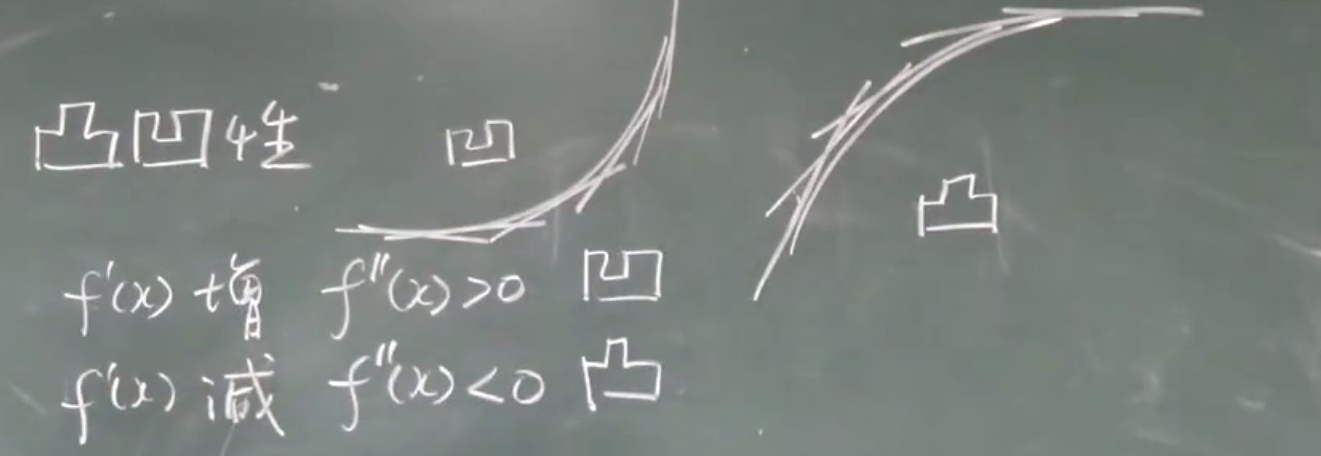 凸凹性
凹
凸
f'(x) 增 f''(x)>0 凹
f'(x) 减 f''(x)<0 凸